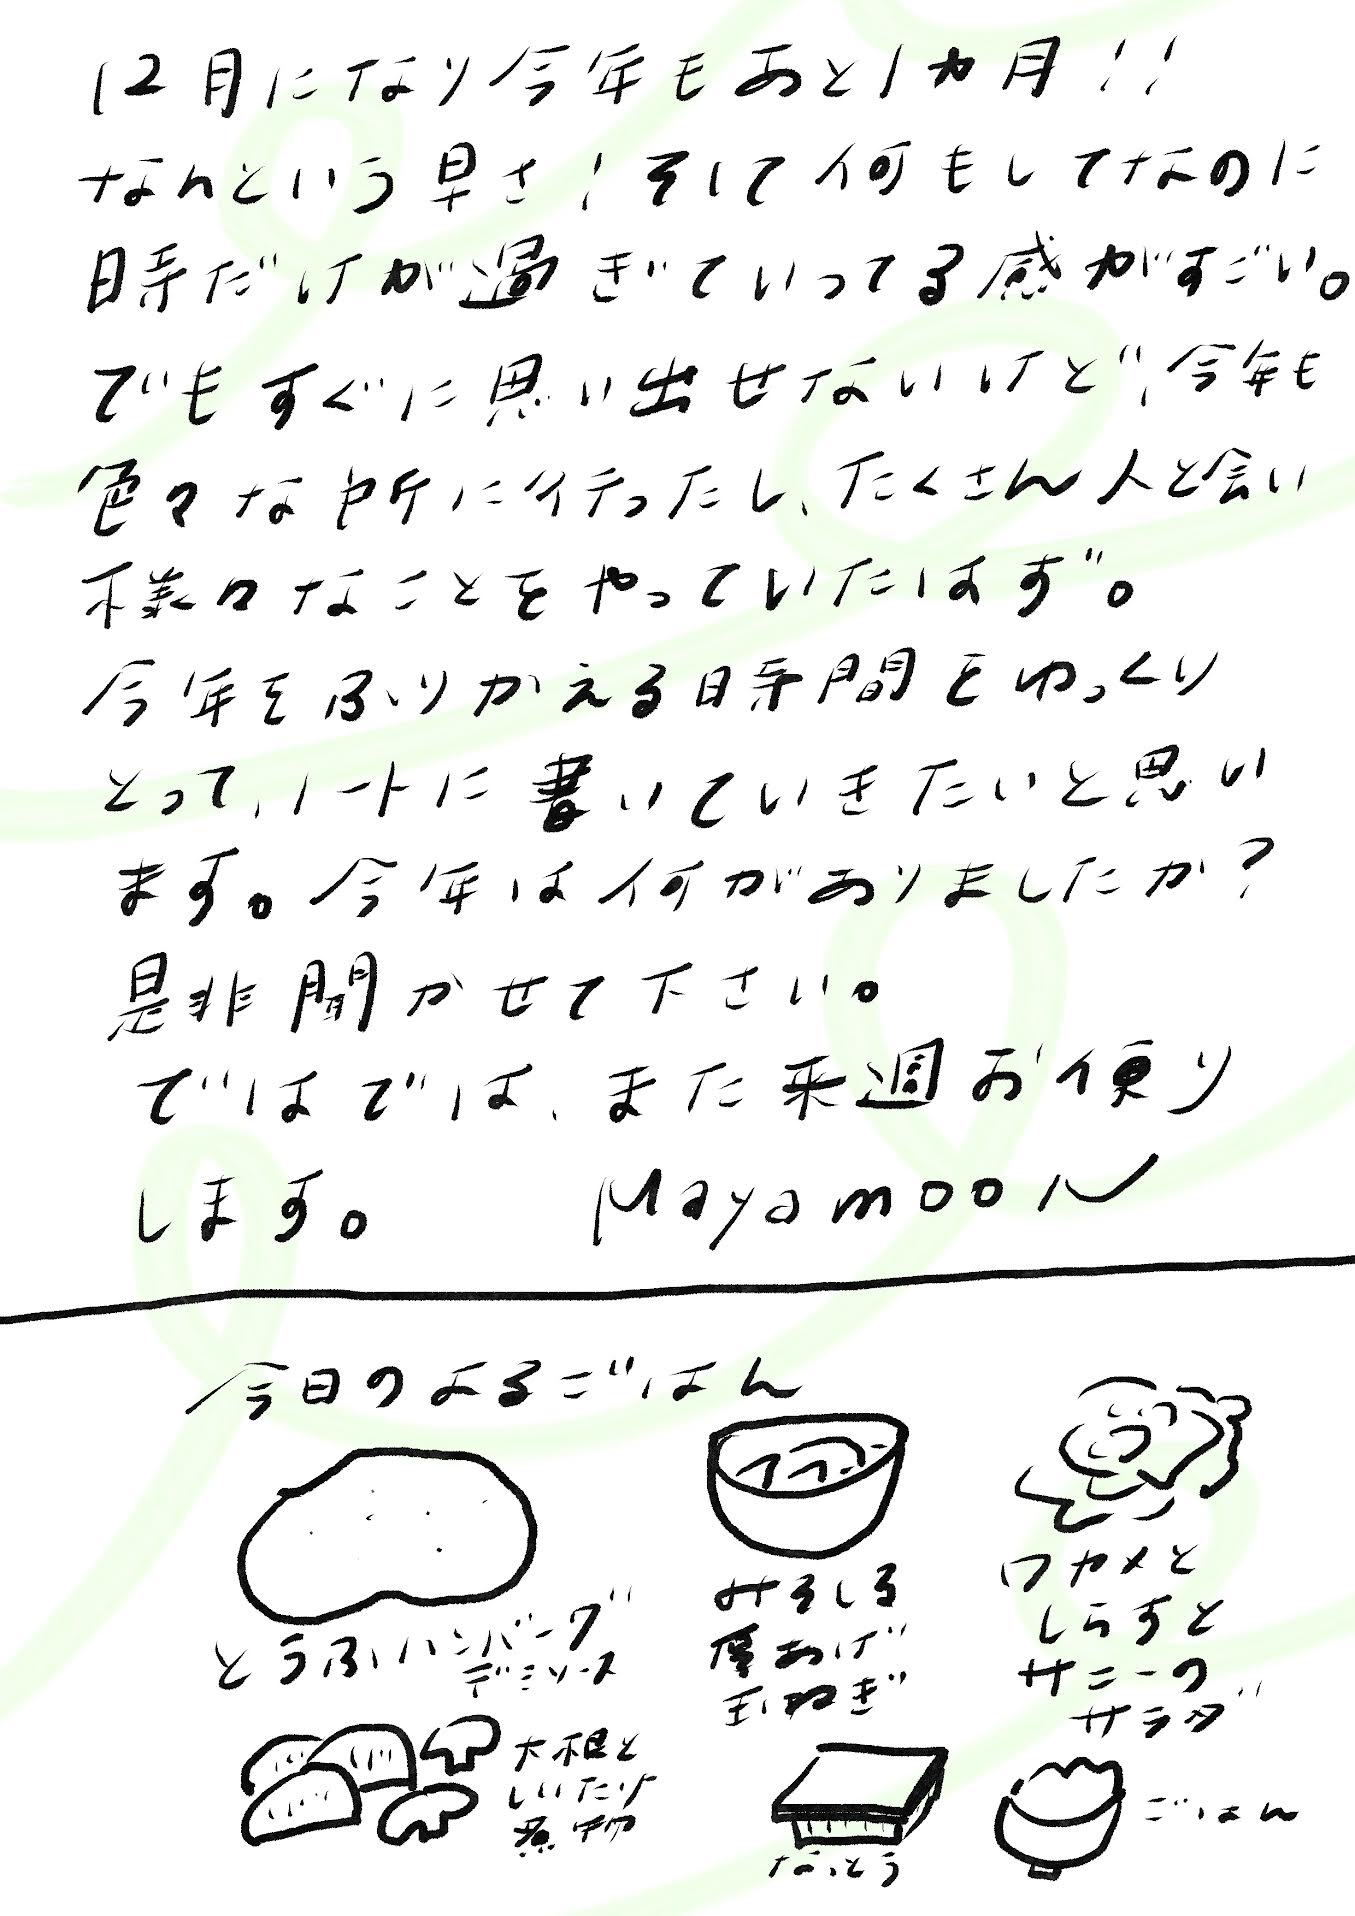 12月になり今年もあと1ヵ月!!
なんという早さ!そして何もしてなのに
時だけが過ぎていってる感がすごい。
でもすぐに思い出せないけど、今年も
色々な所に行ったし、たくさん人と会い
様々なことをやっていたはず。
今年をふりかえる時間をゆっくり
とって、ノートに書いていきたいと思い
ます。今年は何がありましたか?
是非聞かせて下さい。
ではでは、また来週お便り
します。 Mayamoon
今日のよるごはん
とうふハンバーグ
デミソース
みそしる
厚あげ
玉ねぎ
ワカメと
しらすと
サニーの
サラダ
大根と
しいたけ
煮物
なっとう
ごはん